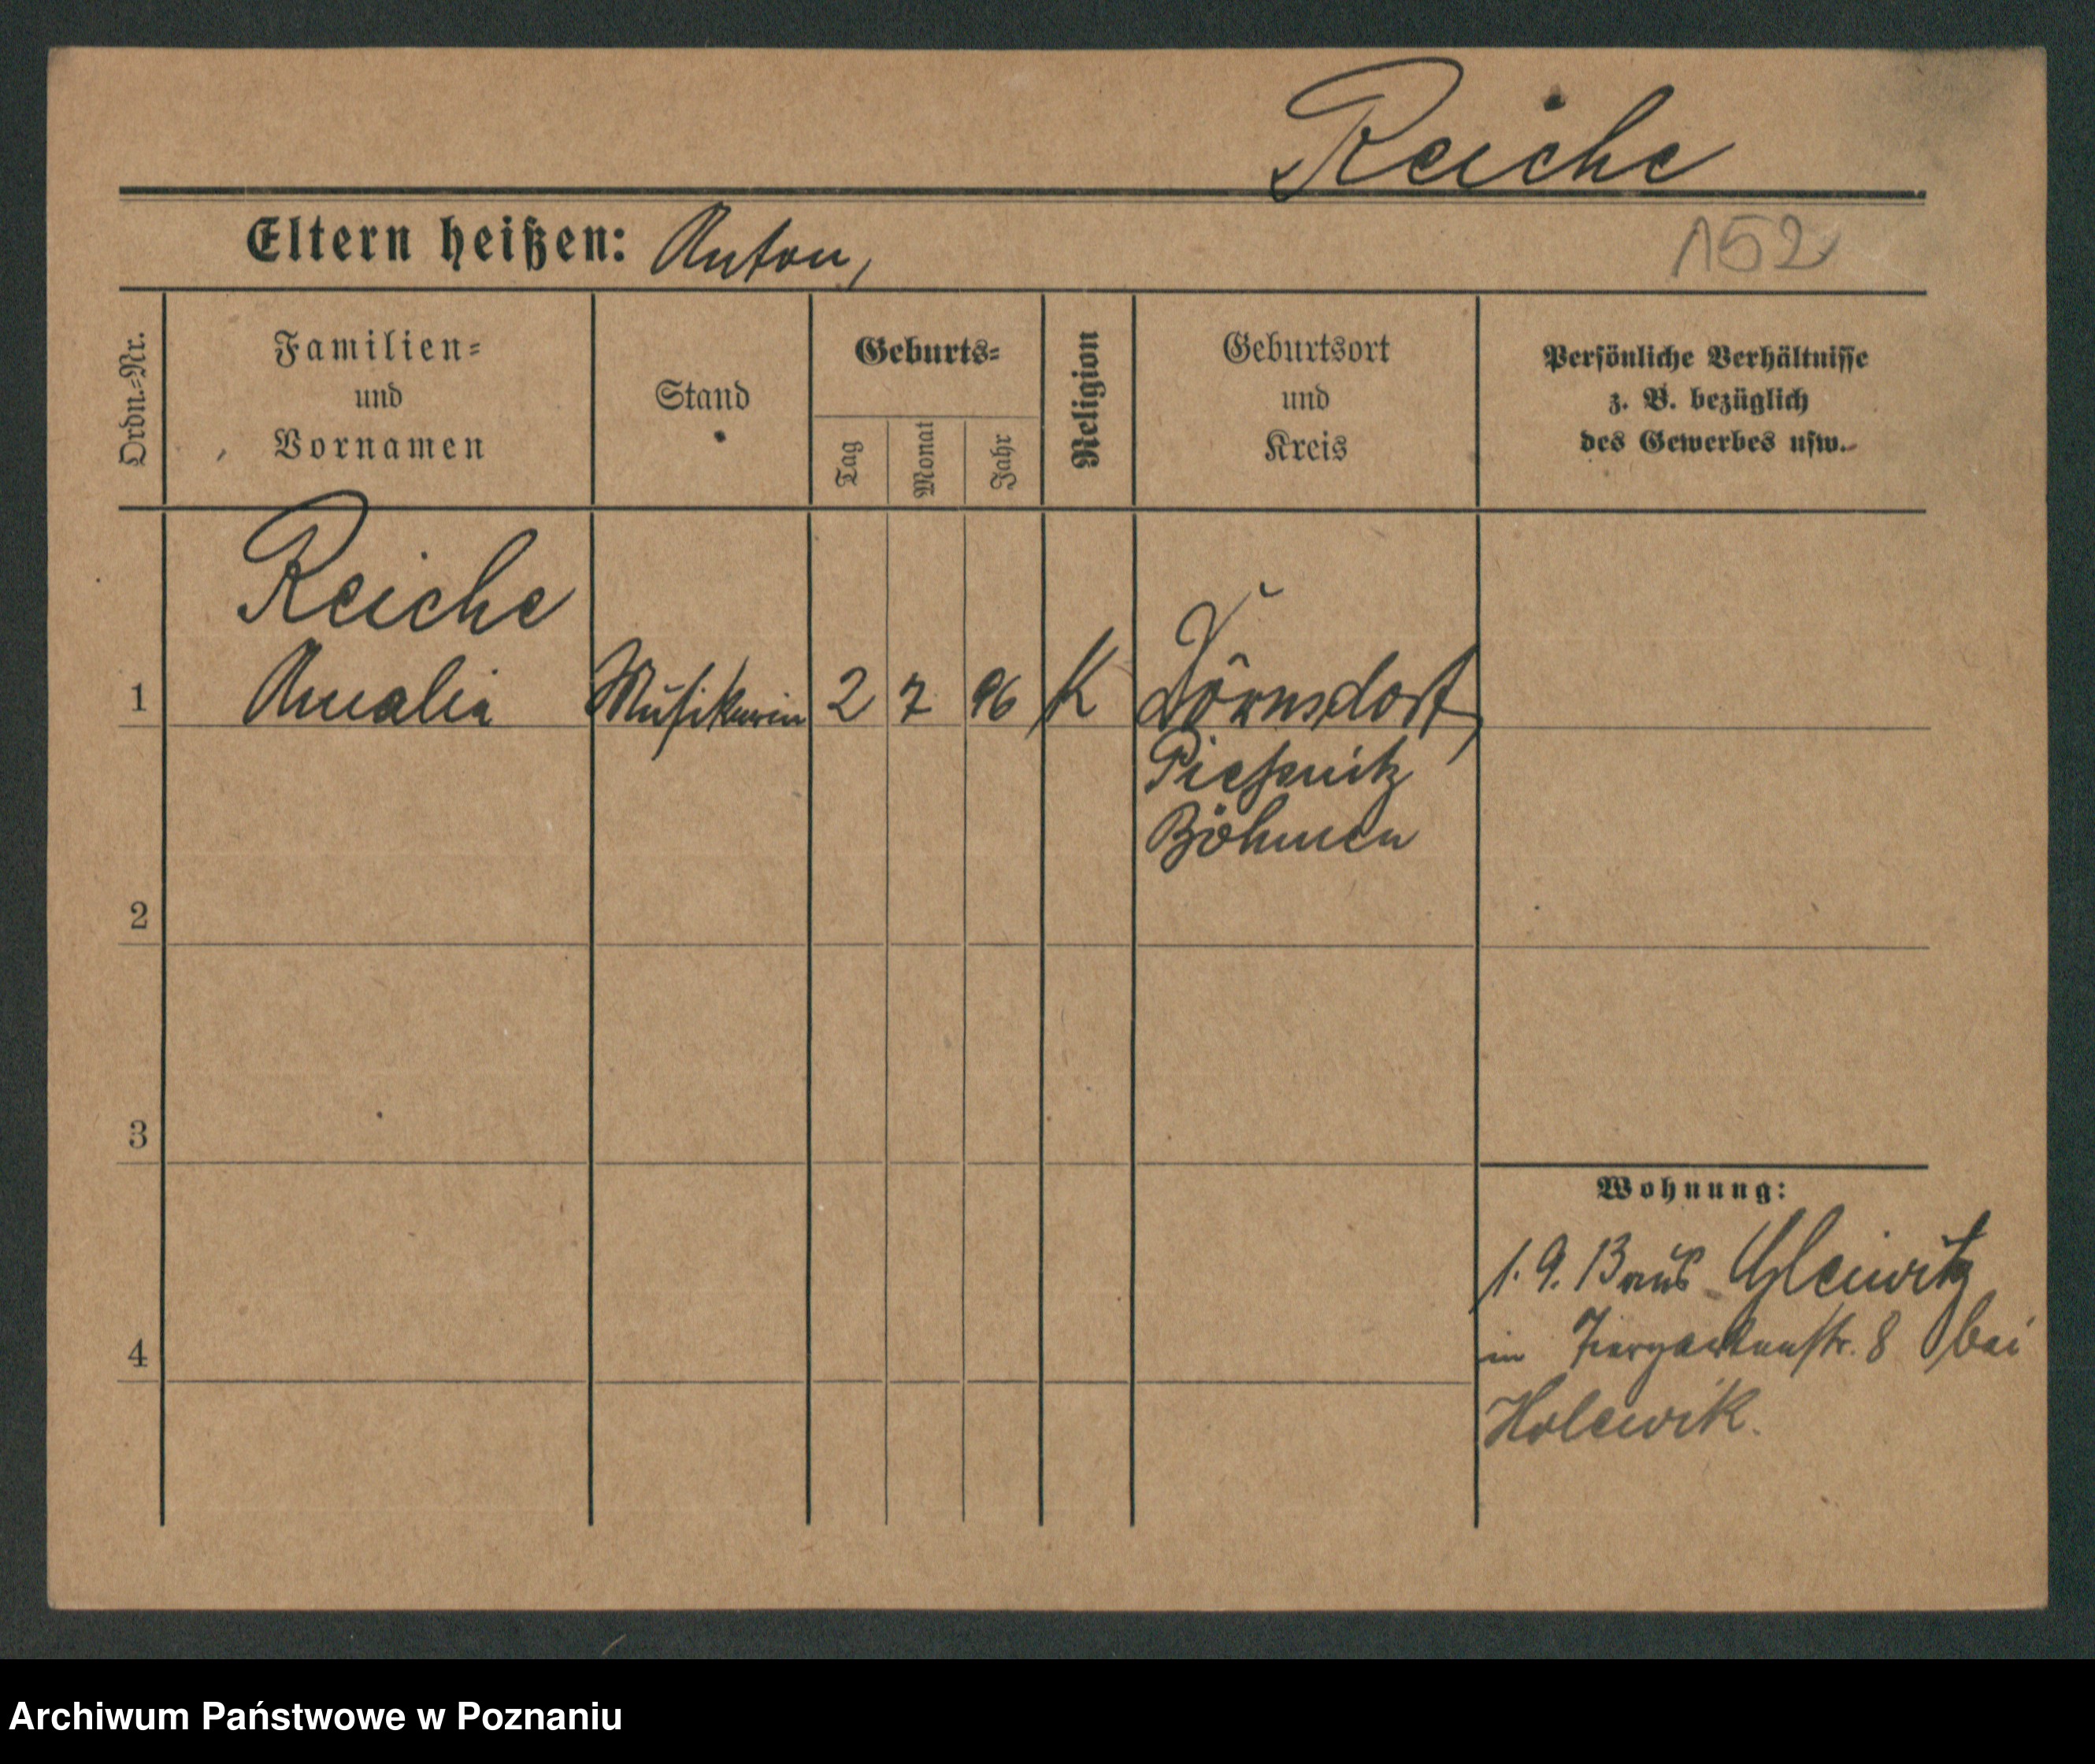 Reiche
Eltern heißen: Anton,
152
Ordn.-Nr.
Familien-
und
Vornamen
Stand
Geburts-
Tag
Monat
Jahr
Religion
Geburtsort
und
Kreis
Persönliche Verhältnisse
z. B. bezüglich
des Gewerbes usw.
Reiche
1 Amalia Musikerin 2 7 96 K Dörnsdorf,
Böhmen
2
3
4
Wohnung:
1.9.13 aus Gleiwitz
in Tiergartenstr. 8 bei
Holewik.
Archiwum Państwowe w Poznaniu